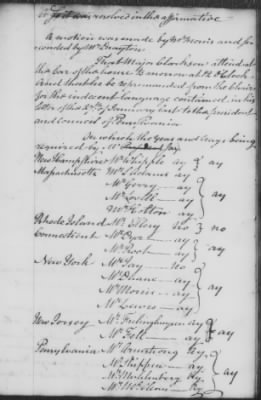 So it was resolved in the affirmative
A motion was made by Mr Morris and se-
conded by Mr Drayton
That Major Clarkson attend at
the bar of this house to morrow at 12 o'Clock
and that he be reprimanded from the Chair
for the indecent language contained in his
letter of the of January last to the president
and Council of Pennsylvania
On which the yeas and nays being
required by Mr Jay
New Hampshire Mr Whipple ay } ay
Massachusetts Mr S Adams ay
Mr Gerry — ay
Mr Lovell — ay } ay
Mr Holton — ay
Rhode Island Mr Ellery no } no
Connecticut Mr Dyer — ay
Mr Root — ay } ay
New York Mr Jay — no
Mr Duane — ay
Mr Morris — ay } ay
Mr Lewis — ay
New Jersey Mr Frelinghuysen ay
Mr Fell — ay } ay
Pennsylvania Mr Armstrong ay
Mr Shippen ay
Mr Muhlenberg ay } ay
Mr McClene ay